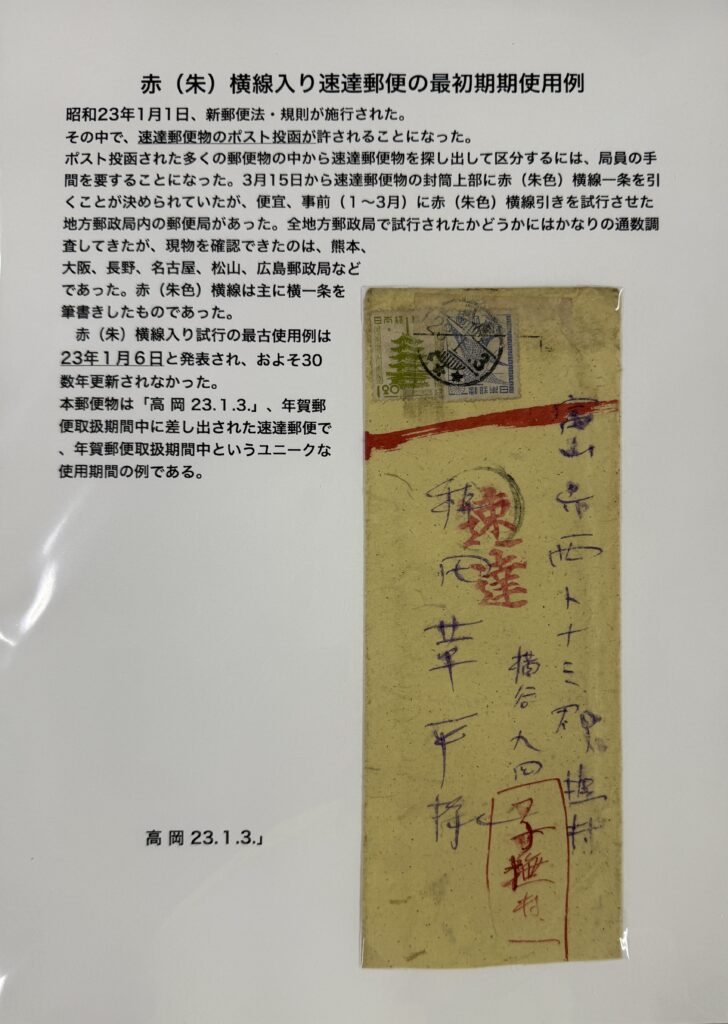 赤（朱）横線入り速達郵便の最初期期使用例
昭和23年1月1日、新郵便法・規則が施行された。
その中で、速達郵便物のポスト投函が許されることになった。
ポスト投函された多くの郵便物の中から速達郵便物を探し出して区分するには、局員の手
間を要することになった。3月15日から速達郵便物の封筒上部に赤（朱色）横線一条を引
くことが決められていたが、便宜、事前（１〜3月）に赤（朱色）横線引きを試行させた
地方郵政局内の郵便局があった。全地方郵政局で試行されたかどうかにはかなりの通数調
査してきたが、現物を確認できたのは、熊本、
大阪、長野、名古屋、松山、広島郵政局など
であった。赤（朱色）横線は主に横一条を
筆書きしたものであった。
赤（朱）横線入り試行の最古使用例は
23年１月６日と発表され、およそ30
数年更新されなかった。
本郵便物は「高 岡 23.1.3.」、年賀郵
便取扱期間中に差し出された速達郵便で
、年賀郵便取扱期間中というユニークな
使用期間の例である。
1.20
速達
横谷九四
子撫村
高 岡 23.1.3.」